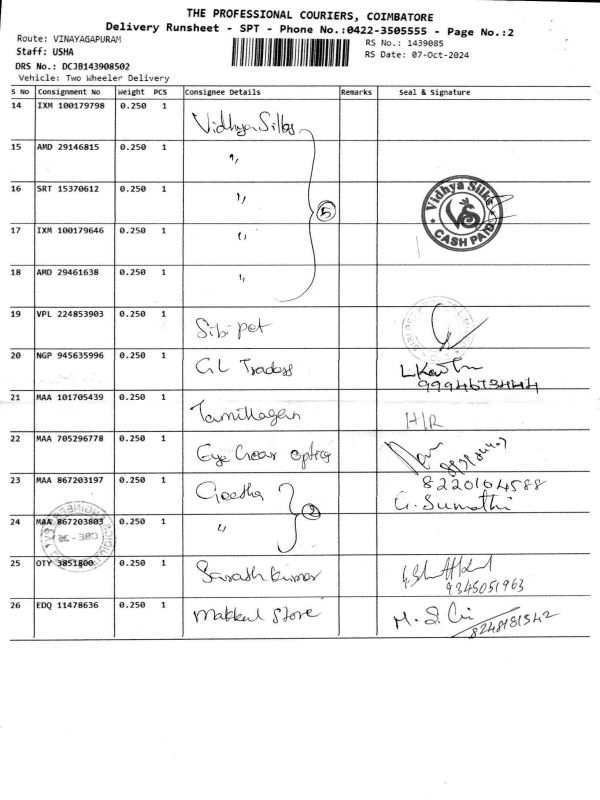 THE PROFESSIONAL COURIERS, COIMBATORE
Delivery Runsheet - SPT - Phone No.:0422-3505555 - Page No.:2
Route: VINAYAGAPURAM
RS No.: 1439085
Staff: USHA
RS Date: 07-Oct-2024
DRS No.: DCJB143908502
Vehicle: Two Wheeler Delivery
S No Consignment No Weight PCS Consignee Details Remarks Seal & Signature
14 IXM 100179798 0.250 1 Vidhya Silks
15 AMD 29146815 0.250 1 "
16 SRT 15370612 0.250 1 " 5 Vidhya Silks CASH PAID
17 IXM 100179646 0.250 1 "
18 AMD 29461638 0.250 1 "
19 VPL 224853903 0.250 1 Sibi pet
20 NGP 945635996 0.250 1 GL Traders
21 MAA 101705439 0.250 1 Tamillagan H/R
22 MAA 705296778 0.250 1 Eye Gear optics
23 MAA 867203197 0.250 1 Geetha 8220104588
G. Sumathi
24 MAA 867203803 0.250 1 " 2
CBE - 38
25 OTY 3851800 0.250 1 Sarath kumar
9345051963
26 EDQ 11478636 0.250 1 Makkal Store
8248181542